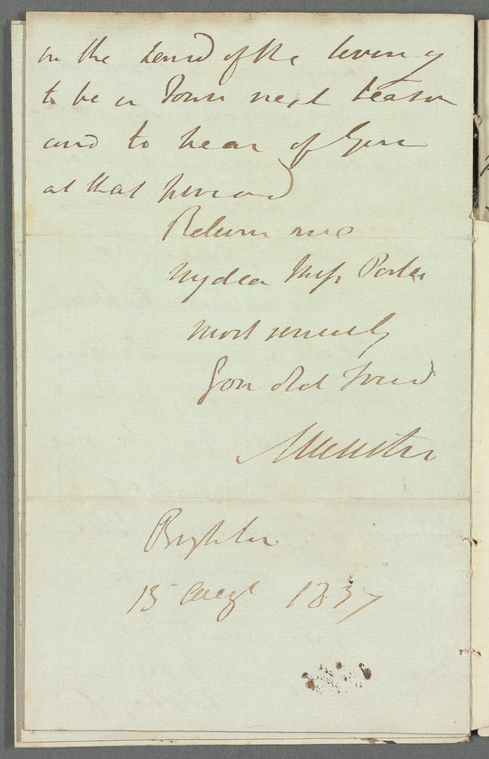 in the land of the living
to be in Town next season
and to hear of you
at that period
Believe me
My dear Miss Porter
most sincerely
your old friend
Munster
Brighton
15 Augt 1837